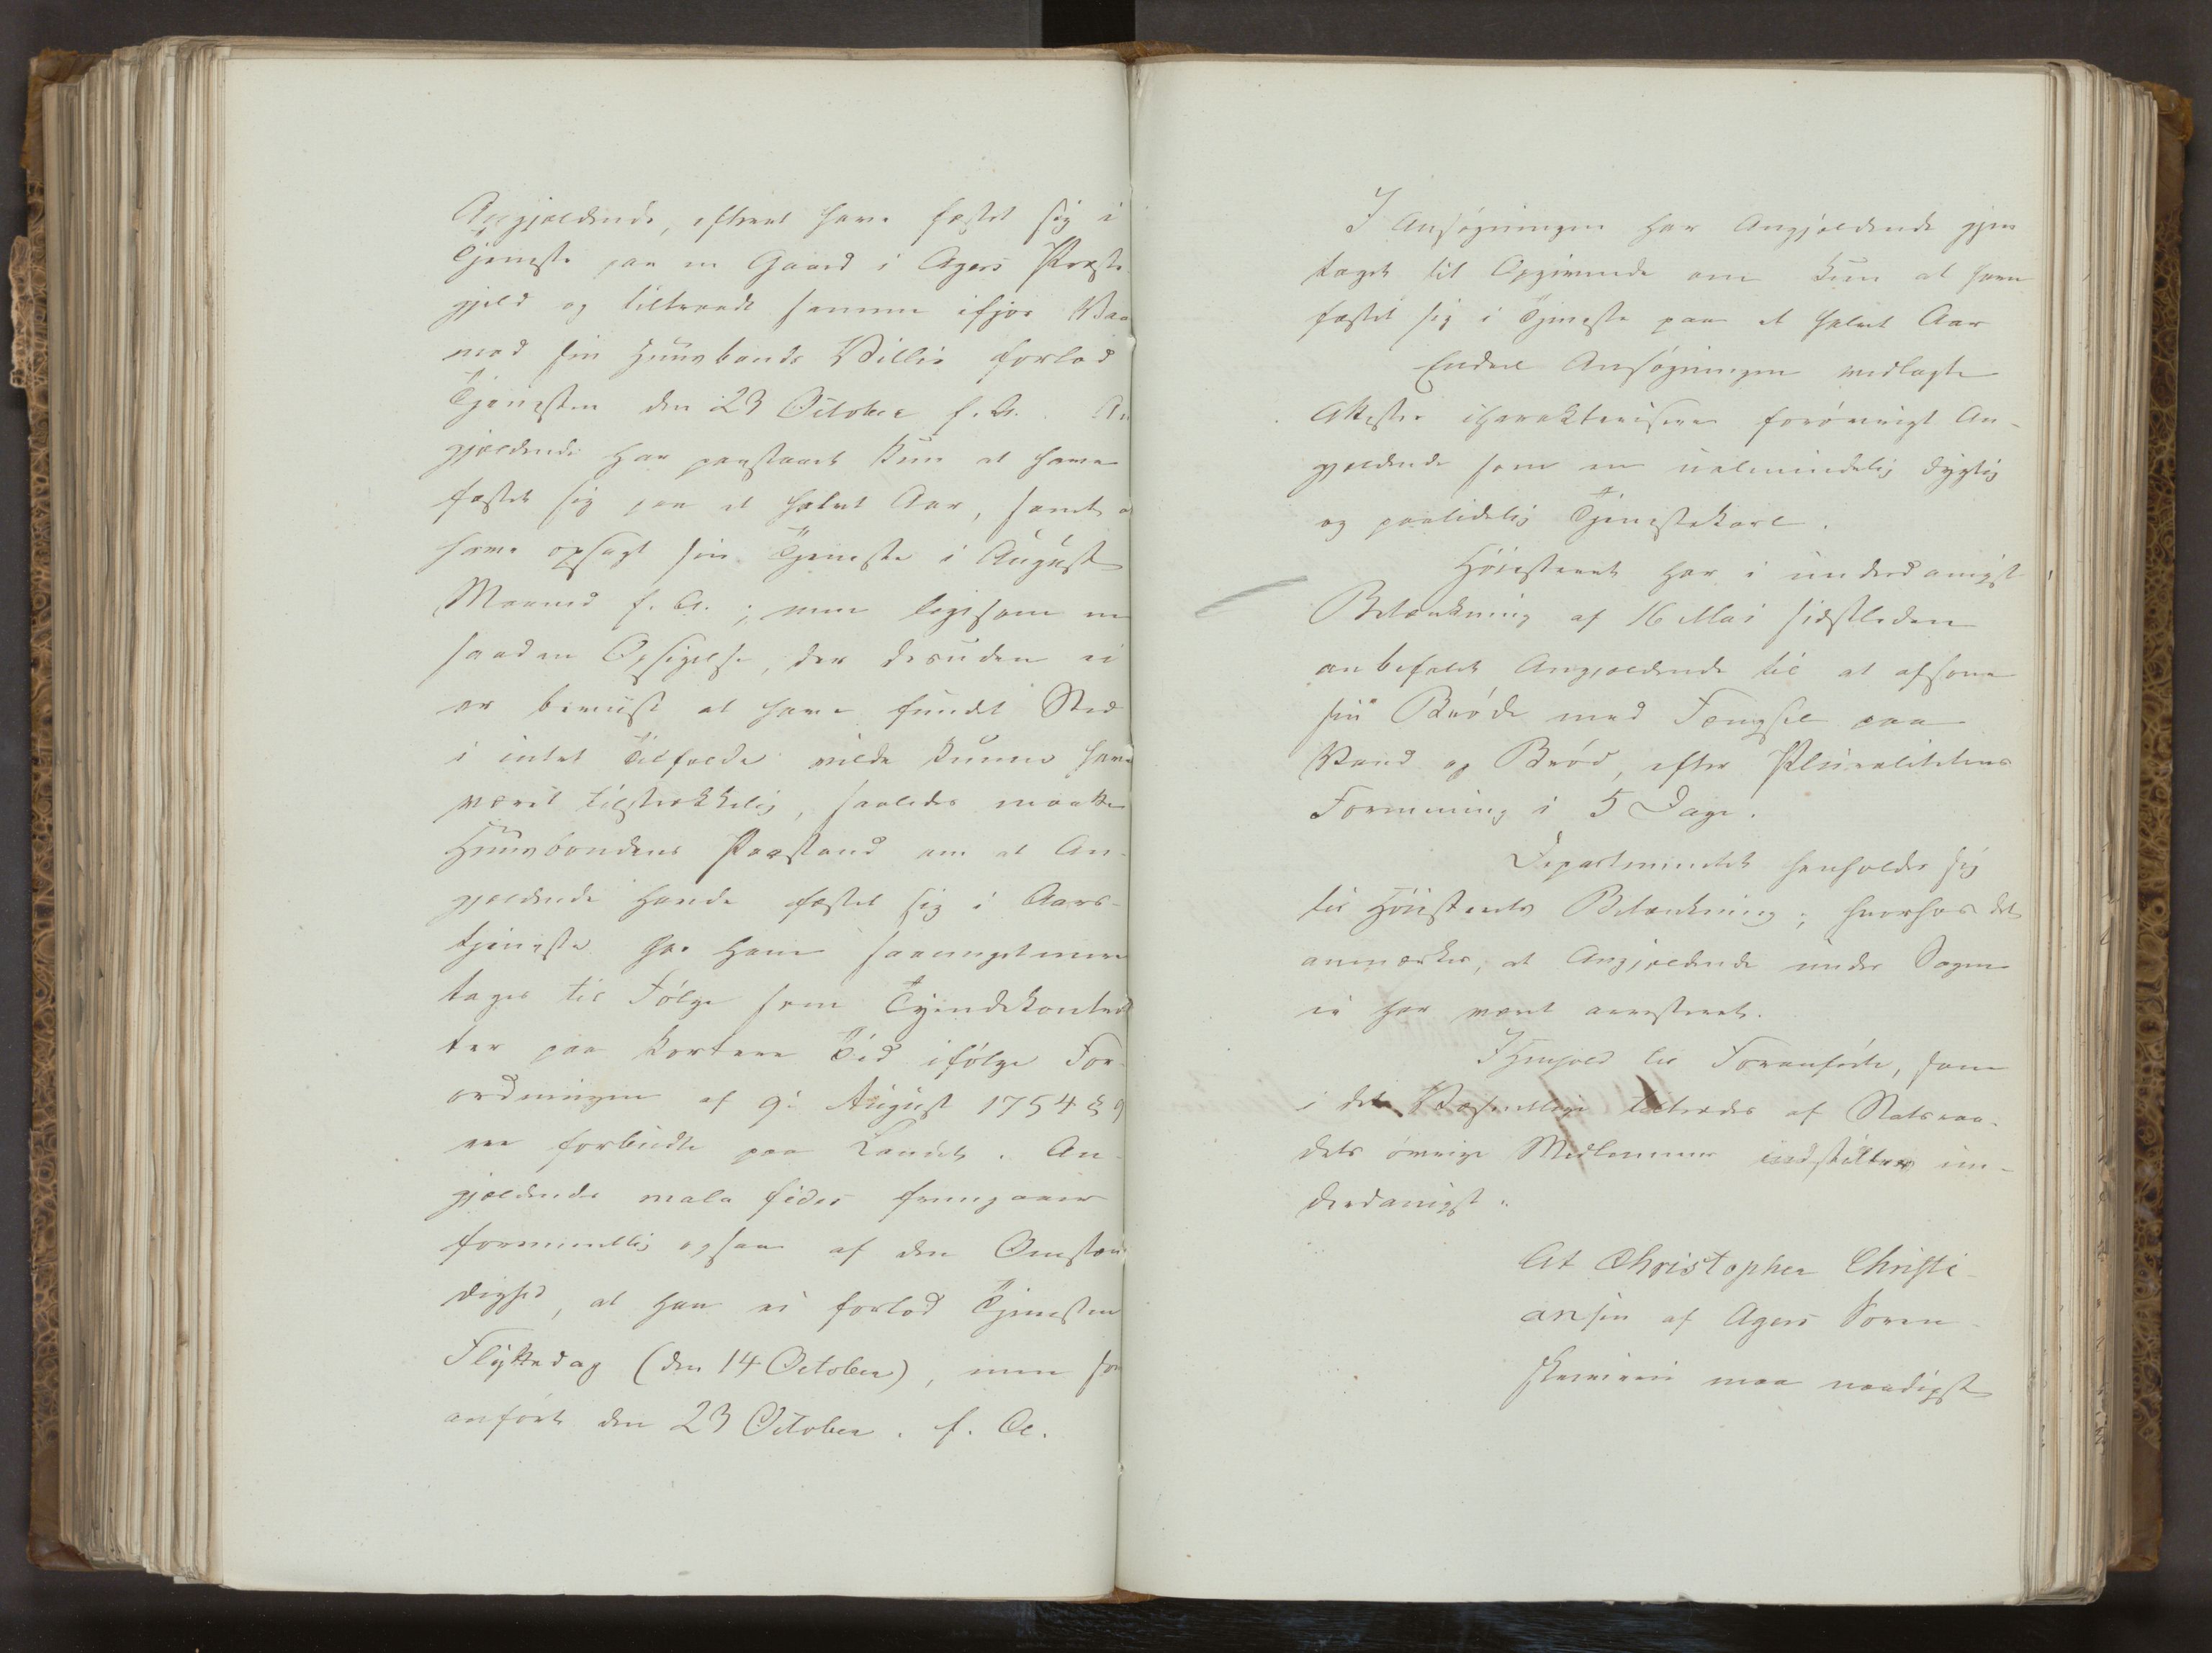 Angjældende, efterat have fæstet sig i
Tjeneste paa en Gaard i Agers Præste
gjeld og tiltraadt samme ifjor Vaa
mod sin Huusbonds Villie forlod
Tjenesten den 23 October f. A. An
gjældende har paastaaet kun at have
fæstet sig paa et halvt Aar, samt a
have opsagt sin Tjeneste i August
Maaned f. A.; men ligesom en
saadan Opsigelse, der desuden ei
er beviist at have fundet Sted
i intet Tilfælde vilde kunne have
været tilstrækkelig, saaledes maatte
Huusbondens Paastand om at An-
gjældende havde fæstet sig i Aars-
tjeneste hos ham saameget mere
tages til Følge som Tyendekontrak
ter paa kortere Tid ifølge For-
ordningen af 9. August 1754 § 9
ere forbudte paa Landet. An-
gjældendes mala fides fremgaaer
formeentlig ogsaa af den Omstæn
dighed, at han ei forlod Tjenesten
Flyttedag (den 14 October), men som
anført den 23 October. f. A.
I Ansøgningen har Angjældende gjen
taget sit Opgivende om kun at have
fæstet sig i Tjeneste paa et halvt Aar
Endeel Ansøgningen vedlagte
Attester characterisere forøvrigt An-
gjældende som en ualmindelig dygtig
og paalidelig Tjenestekarl.
Høiesteret har i underdanigst
Betænkning af 16 Mai sidstleden
anbefalet Angjældende til at afsone
sin Brøde med Fængsel paa
Vand og Brød, efter Pluralitetens
Formening i 5 Dage.
Departementet henholder sig
til Høiesterets Betænkning; hvorhos det
anmærkes, at Angjældende under Sagen
ei har været arresteret.
I Henhold til Foranførte, som
i det Væsentlige tiltrædes af Statsraa-
dets øvrige Medlemmer indstilles un-
derdanigst:
At Christopher Christi-
ansen af Agers Soren-
skriveri maa naadigst